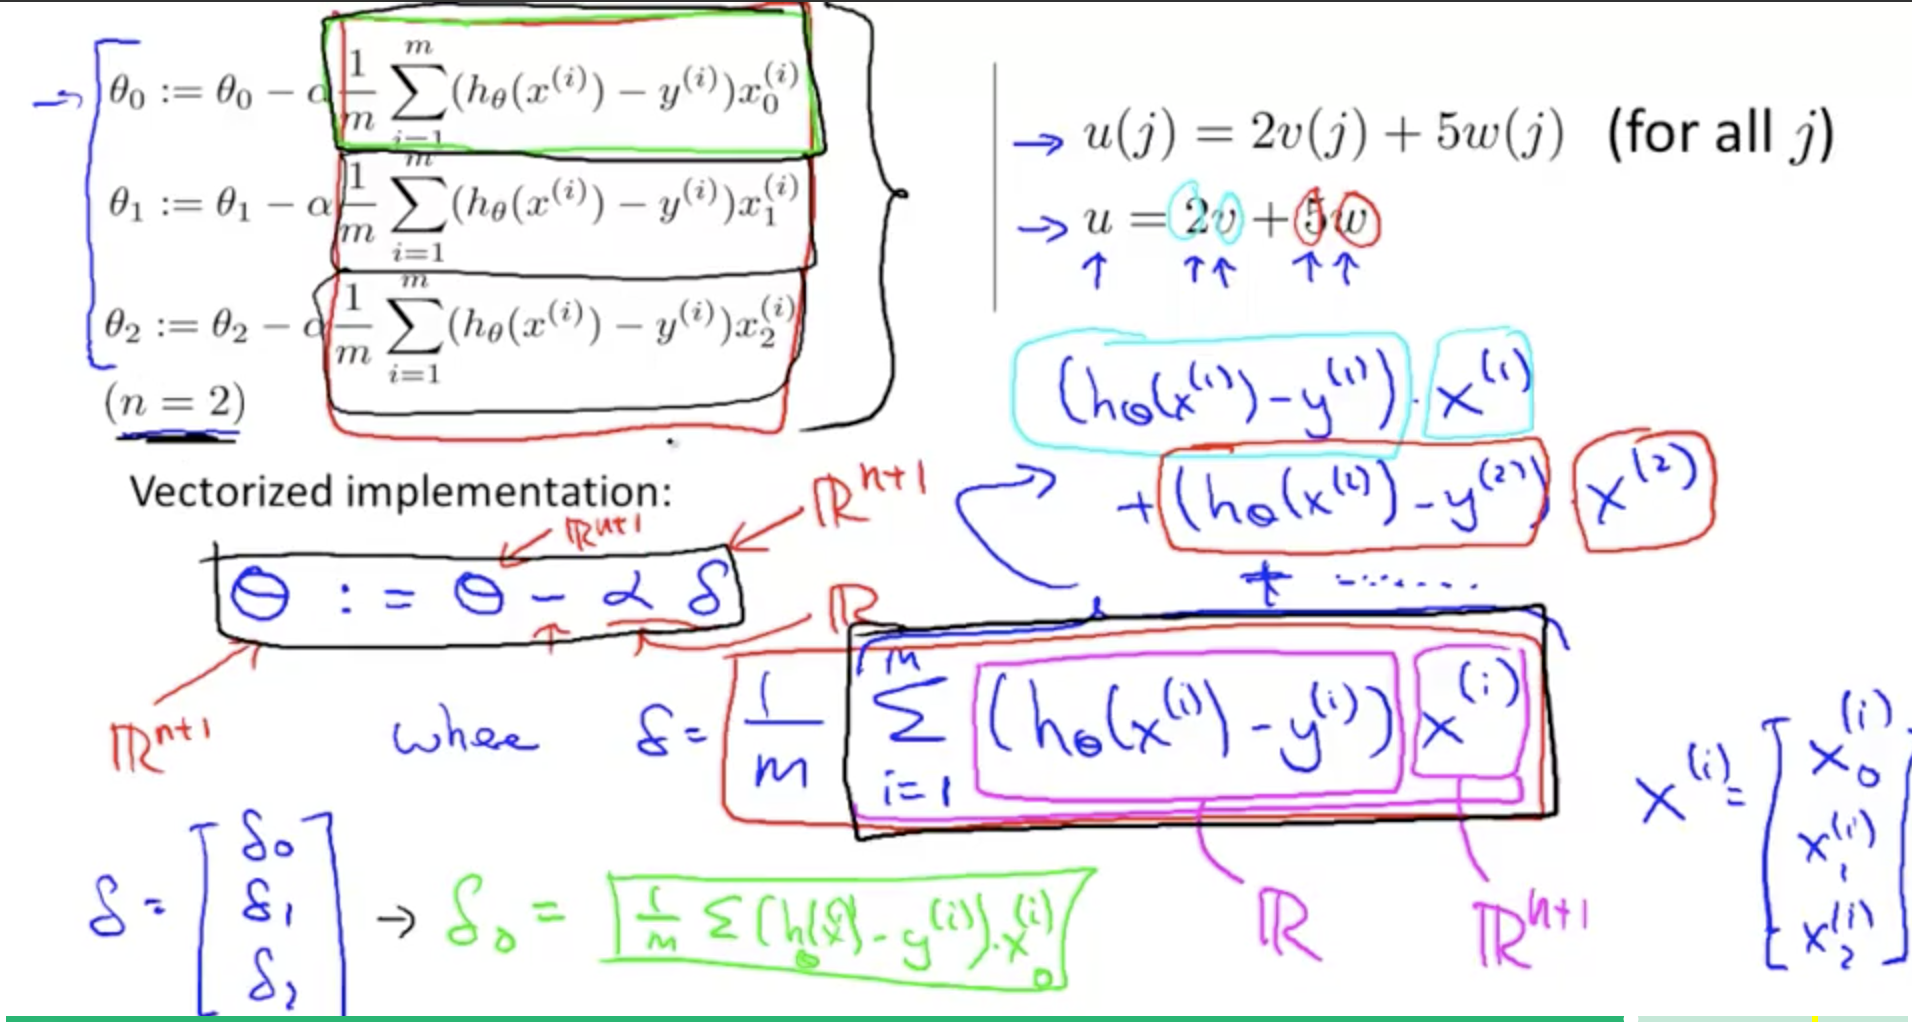 θ₀ := θ₀ − α 1/m ∑_{i=1}^{m} (h_θ(x^{(i)}) − y^{(i)}) x₀^{(i)}
θ₁ := θ₁ − α 1/m ∑_{i=1}^{m} (h_θ(x^{(i)}) − y^{(i)}) x₁^{(i)}
θ₂ := θ₂ − α 1/m ∑_{i=1}^{m} (h_θ(x^{(i)}) − y^{(i)}) x₂^{(i)}
(n = 2)
→ u(j) = 2v(j) + 5w(j) (for all j)
→ u = 2v + 5w
↑ ↑↑ ↑↑
(h_θ(x^{(1)}) − y^{(1)}) · x^{(1)}
+ (h_θ(x^{(2)}) − y^{(2)}) x^{(2)}
+ ........
Vectorized implementation:
ℝ^{n+1}
ℝ^{n+1}
θ := θ − α δ
ℝ
ℝ^{n+1}
where δ = 1/m ∑_{i=1}^{m} (h_θ(x^{(i)}) − y^{(i)}) x^{(i)}
ℝ ℝ^{n+1}
x^{(i)} = [x₀^{(i)}
x₁^{(i)}
x₂^{(i)}]
δ = [δ₀
δ₁
δ₂]
→ δ₀ = 1/m ∑ (h_θ(x^{(i)}) − y^{(i)}) · x₀^{(i)}